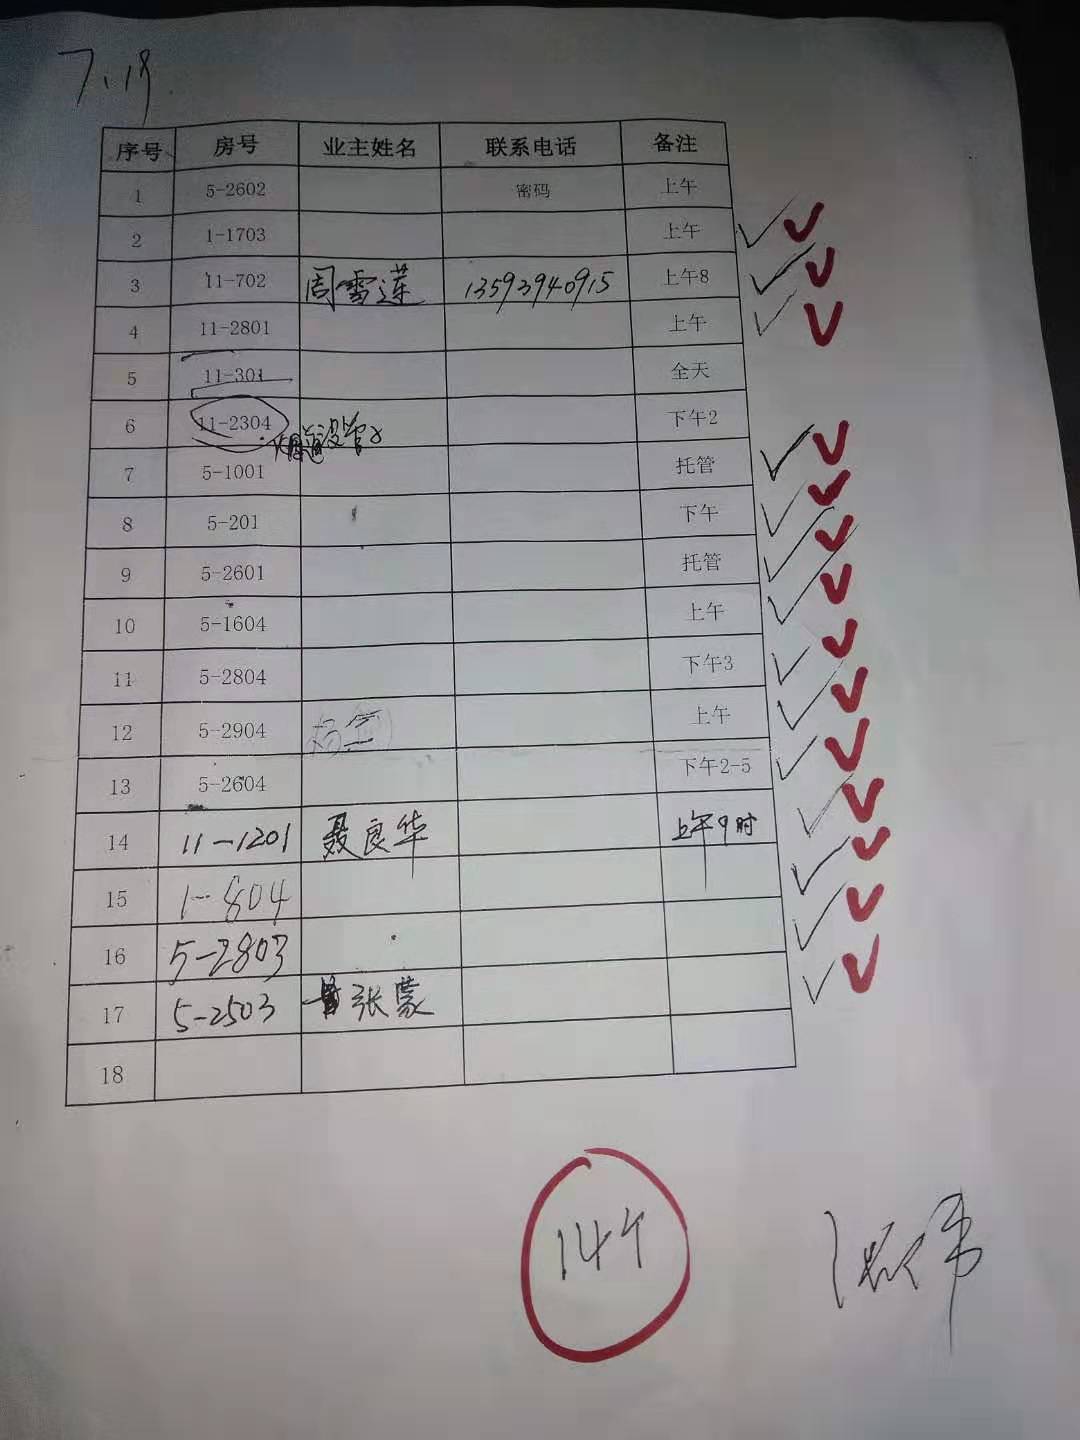 7.19
序号 房号 业主姓名 联系电话 备注
1 5-2602 密码 上午
2 1-1703 上午
3 11-702 周雪莲 13593940915 上午8
4 11-2801 上午
5 11-301 全天
6 11-2304 下午2
烟道没管子
7 5-1001 托管
8 5-201 下午
9 5-2601 托管
10 5-1604 上午
11 5-2804 下午3
12 5-2904 上午
13 5-2604 下午2-5
14 11-1201 聂良华 上午9时
15 1-804
16 5-2803
17 5-2503 张蒙
18
14个